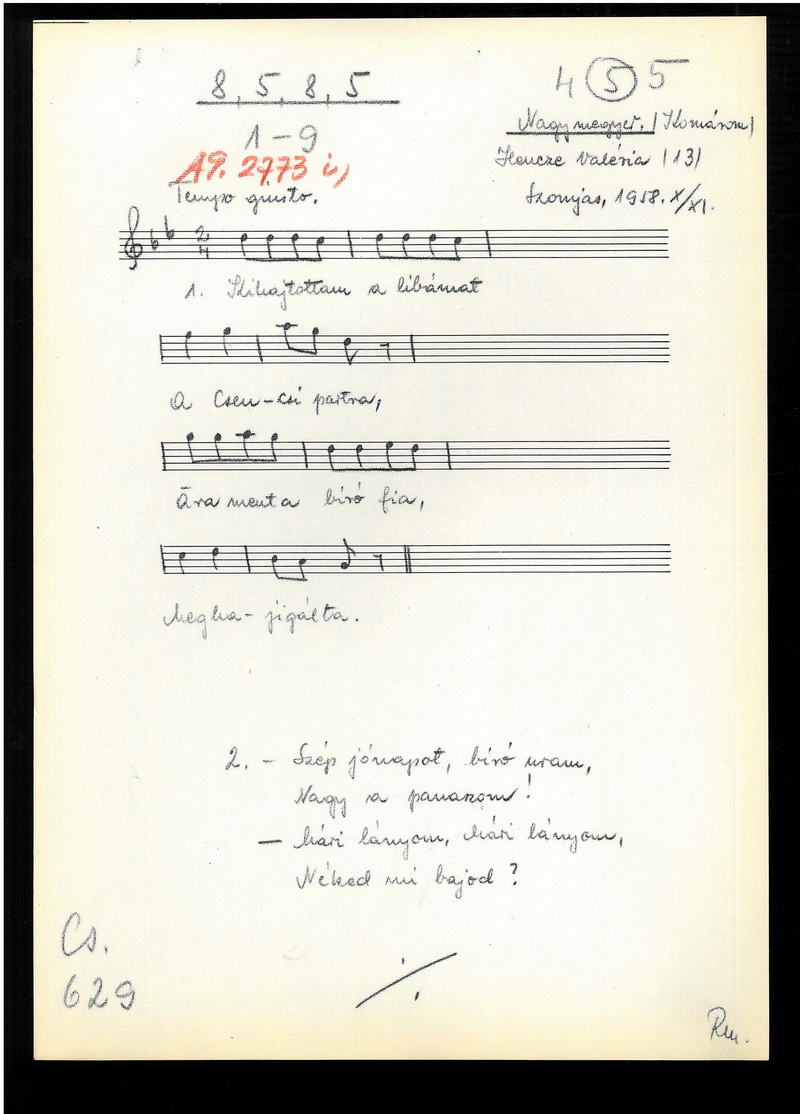 8, 5, 8, 5
4 5 5
1-9
Nagymegyer. (Komárom)
AP. 2773 i)
Hencze Valéria (13)
Tempo giusto.
Szomjas, 1958. X/XI.
2
4
1. Kihajtottam a libámat
A Csen-csi partra,
Ára ment a bíró fia,
Megha- jigálta.
2. - Szép jónapot, bíró uram,
Nagy a panaszom!
- Mári lányom, Mári lányom,
Néked mi bajod?
Cs.
629
Rm.